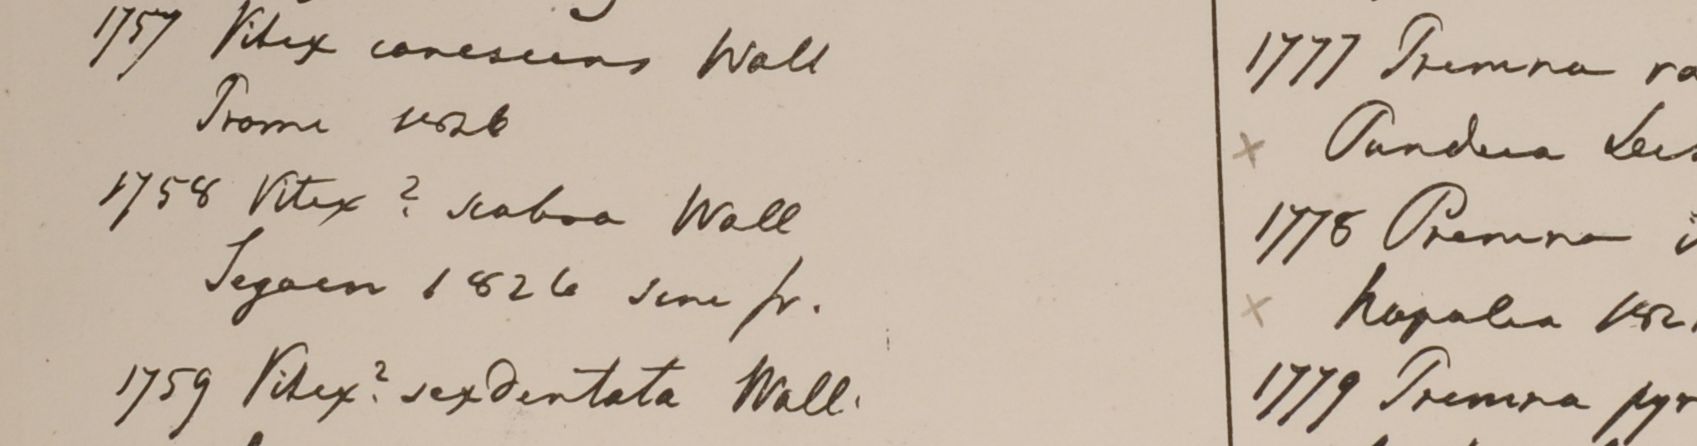 1757 Vitex canescens Wall
Prome 1826
1758 Vitex ? scabra Wall
Segaen 1826 sine fr.
1759 Vitex? sexdentata Wall.
1777 Premna
Pundua
1778 Premna
Napalia 182
1779 Premna pyr